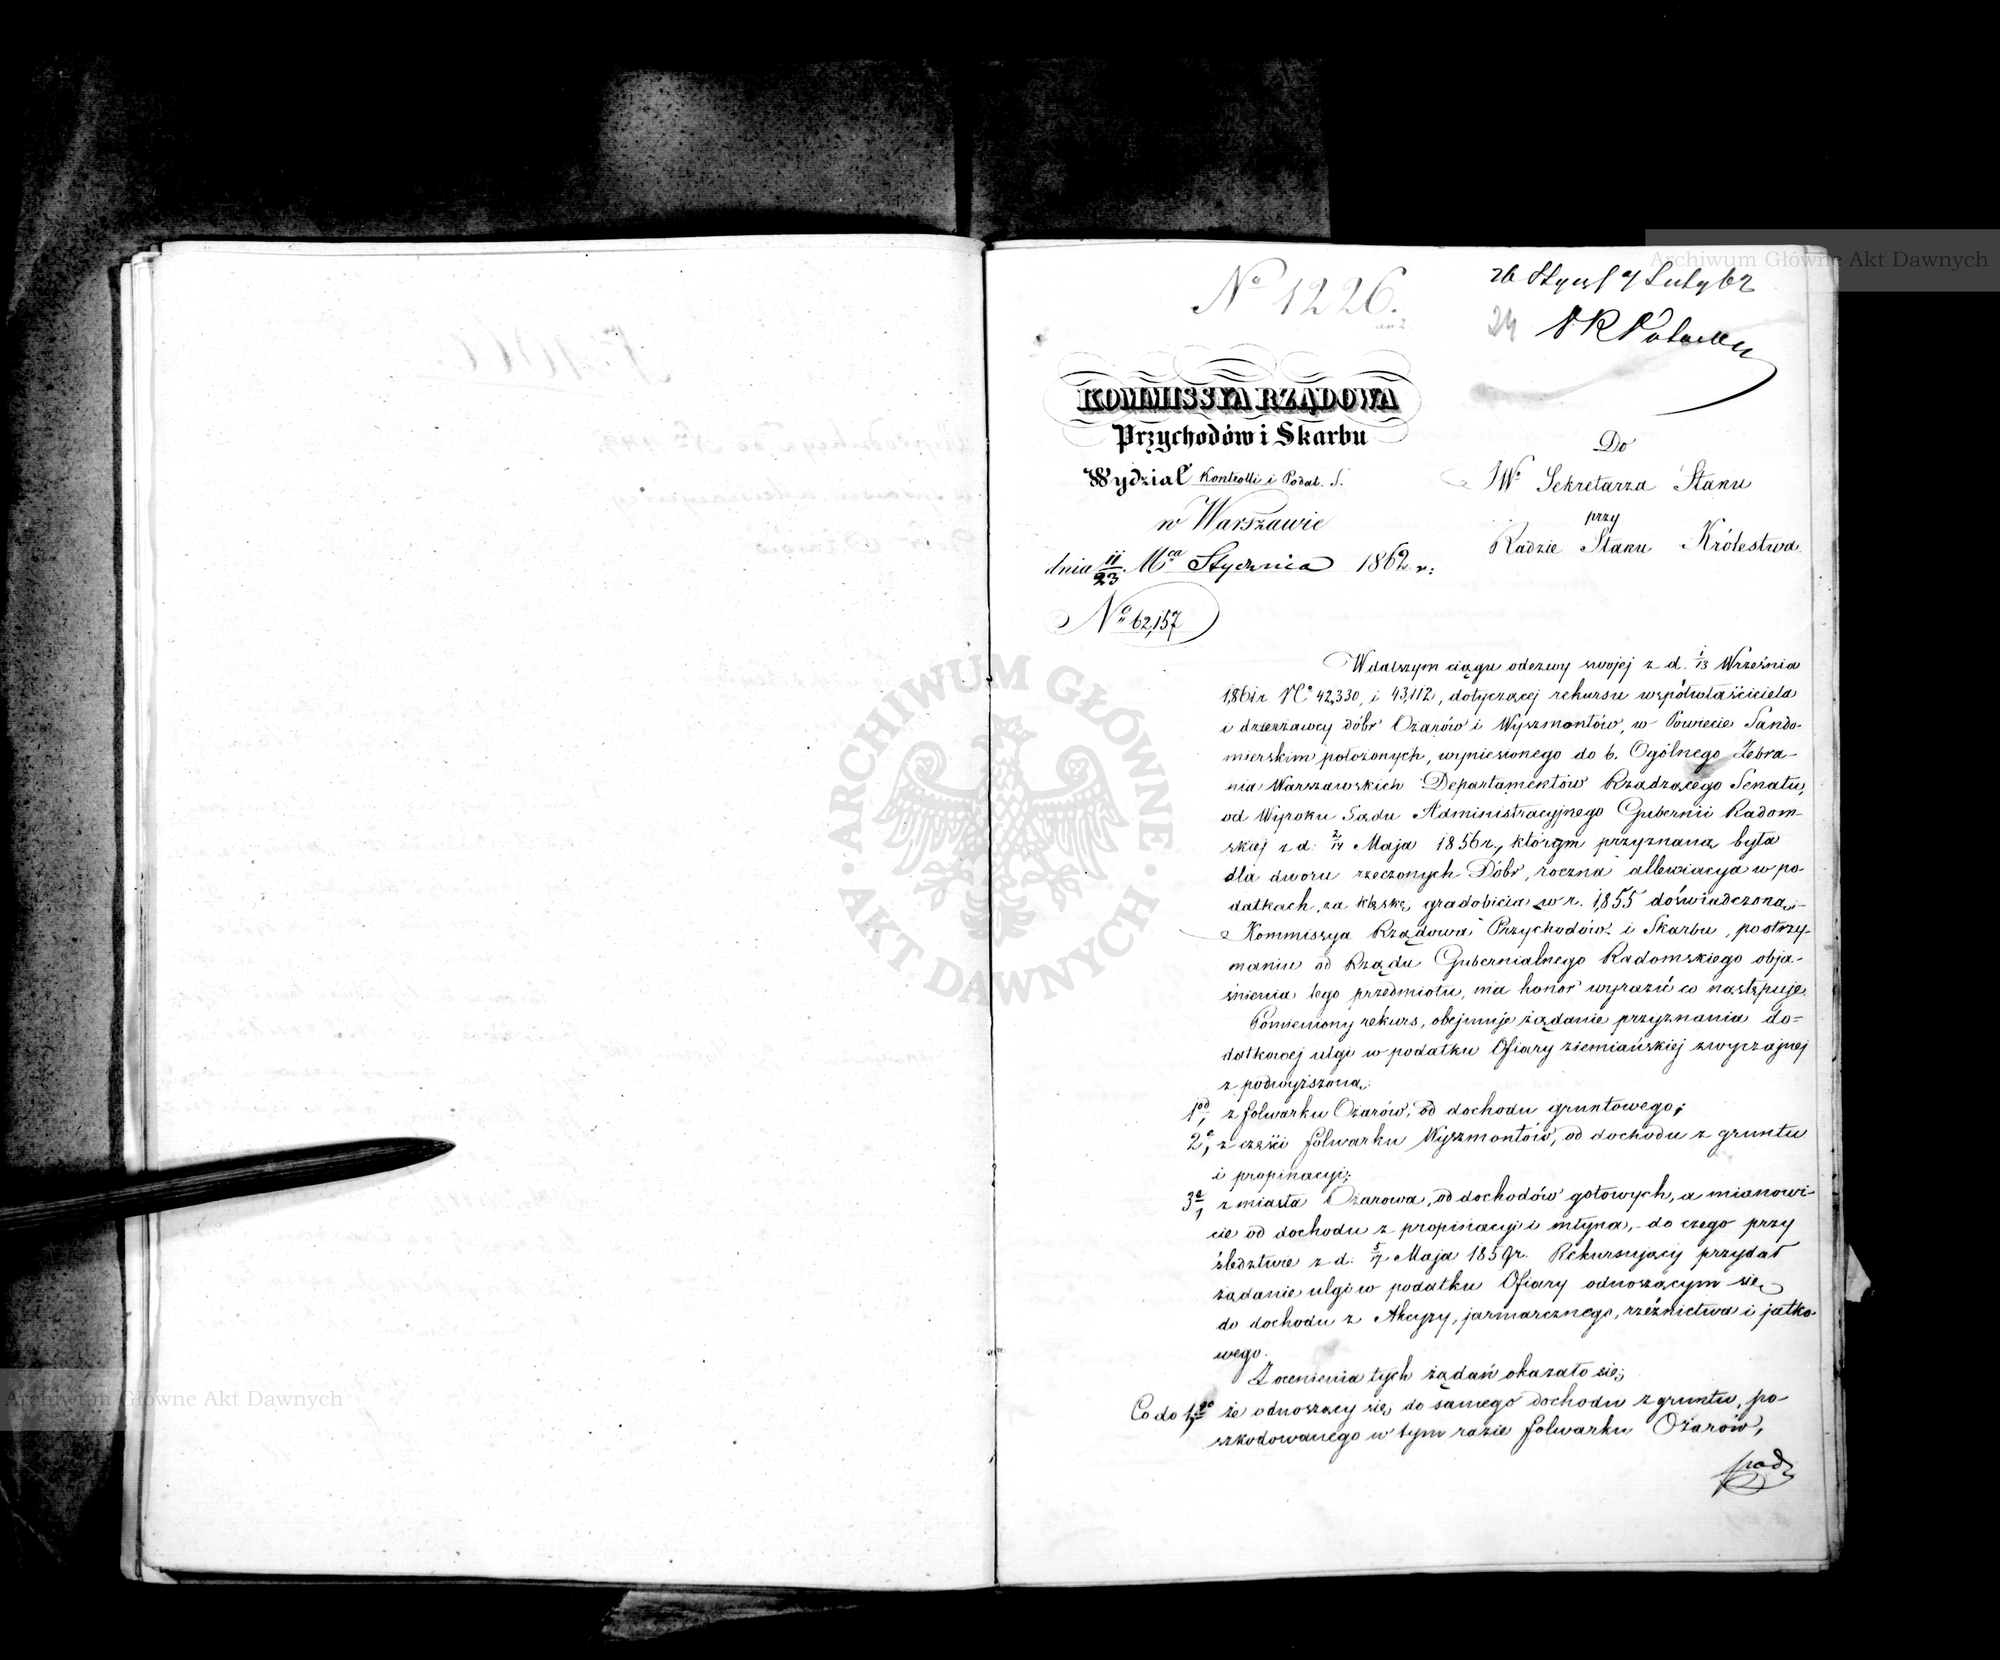 Nº 1226.
26 Stycz/7 Luty 62
24
KOMMISSYA RZĄDOWA
Przychodów i Skarbu
Wydział Kontrolli i Podat. S.
w Warszawie
dnia 11/23 Mca Stycznia 1862 r:
Nº 62,157
Do
JWº Sekretarza Stanu
przy
Radzie Stanu Królestwa.
W dalszym ciągu odezwy swojej z d. 1/13 Września
1861 r Nº 42,330, i 43,112, dotyczącej rekursu współwłaściciela
i dzierżawcy dóbr Ożarów i Wyszmontów, w Powiecie Sando-
mierskim położonych, wyniesionego do b. Ogólnego Zebra-
nia Warszawskich Departamentów Rządzącego Senatu,
od Wyroku Sądu Administracyjnego Gubernii Radom-
skiej z d: 2/14 Maja 1856 r., którym przyznaną była
dla dworu rzeczonych Dóbr, roczna allewiacya w po-
datkach, za klęskę gradobicia w r. 1855 doświadczoną,-
Kommissya Rządowa Przychodów i Skarbu, po otrzy-
maniu od Rządu Gubernialnego Radomskiego obja-
śnienia tego przedmiotu, ma honor wyrazić co następuje.
Pomieniony rekurs, obejmuje żądanie przyznania do=
datkowej ulgi w podatku Ofiary ziemiańskiej zwyczajnej
z podwyższoną:
1od, z folwarku Ożarów, od dochodu gruntowego;
2e, z części folwarku Wyszmontów, od dochodu z gruntu
i propinacyi;
3e, z miasta Ożarowa, od dochodów gotowych, a mianowi-
cie od dochodu z propinacyi i młyna,- do czego przy
śledztwie z d: 5/17 Maja 1859 r. Rekursujący przydał
żądanie ulgi w podatku Ofiary odnoszącym się
do dochodu z Akcyzy, jarmarcznego, rzeźnictwa i jatko-
wego.
Z ocenienia tych żądań okazało się;
Co do 1go że odnoszący się do samego dochodu z gruntu, po-
szkodowanego w tym razie folwarku Ożarów,
pod
ARCHIWUM GŁÓWNE AKT DAWNYCH
Archiwum Główne Akt Dawnych
Archiwum Główne Akt Dawnych